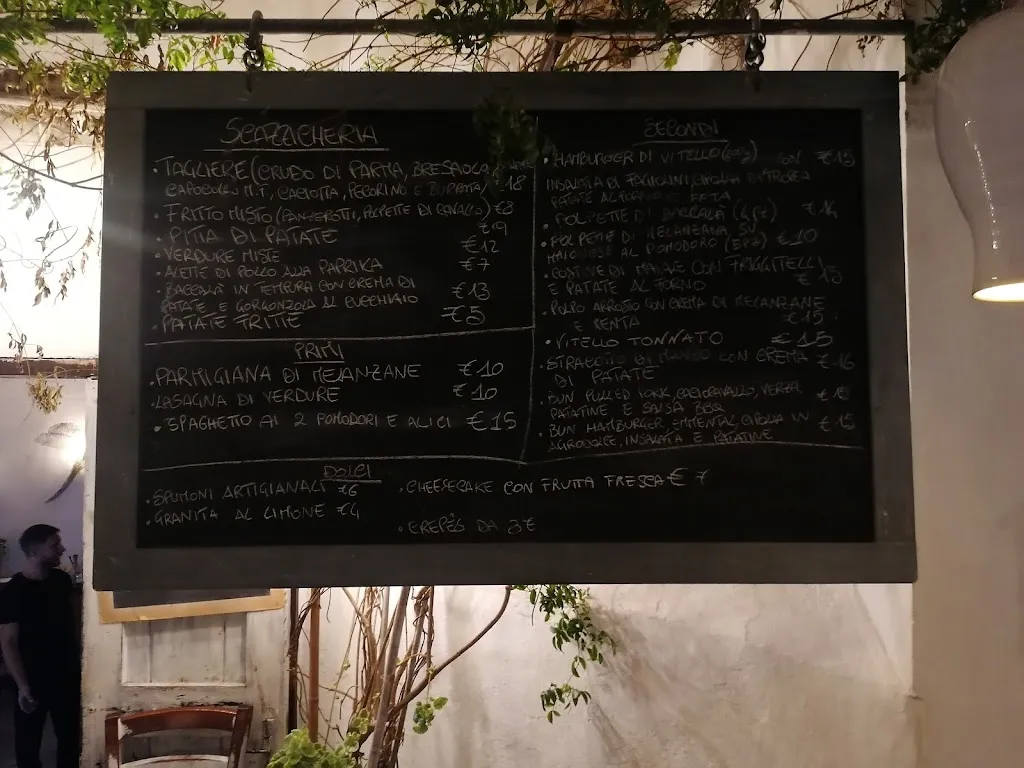 STUZZICHERIA
• TAGLIERE (CRUDO DI PARMA, BRESAOLA,
CAPOCOLLO M.F., CACIOTTA, PECORINO E €18
• FRITTO MISTO (PANZEROTTI, POLPETTE DI CAVALLO) €8
• PITTA DI PATATE
• VERDURE MISTE €12
• ALETTE DI POLLO ALLA PAPRIKA €7
• BACCALÀ IN TEMPURA CON CREMA DI
PATATE E GORGONZOLA AL CUCCHIAIO €13
• PATATE FRITTE €5
PRIMI
• PARMIGIANA DI MELANZANE €10
• LASAGNA DI VERDURE €10
• SPAGHETTO AI 2 POMODORI E ALICI €15
DOLCI
• SPUMONI ARTIGIANALI €6
• GRANITA AL LIMONE €4
• CHEESECAKE CON FRUTTA FRESCA € 7
• CREPÊS DA 3€
SECONDI
• HAMBURGER DI VITELLO CON €15
INSALATA DI FAGIOLINI, CIPOLLA DI TROPEA
PATATE FETA
• POLPETTE DI BACCALÀ €14
• POLPETTE DI MELANZANA SU
MAIONESE AL POMODORO (5PZ) €10
• COSTINE DI MAIALE CON FRIGGITELLI
E PATATE AL FORNO €15
• POLPO ARROSTO CON CREMA DI MELANZANE
E MENTA €15
• VITELLO TONNATO €15
• STRACCETTI DI MANZO CON CREMA €16
DI PATATE
• BUN PULLED PORK, CACIOCAVALLO, VERZA, €15
PATATINE E SALSA BBQ
• BUN HAMBURGER, EMMENTAL, CIPOLLA IN €15
AGRODOLCE, INSALATA E PATATINE